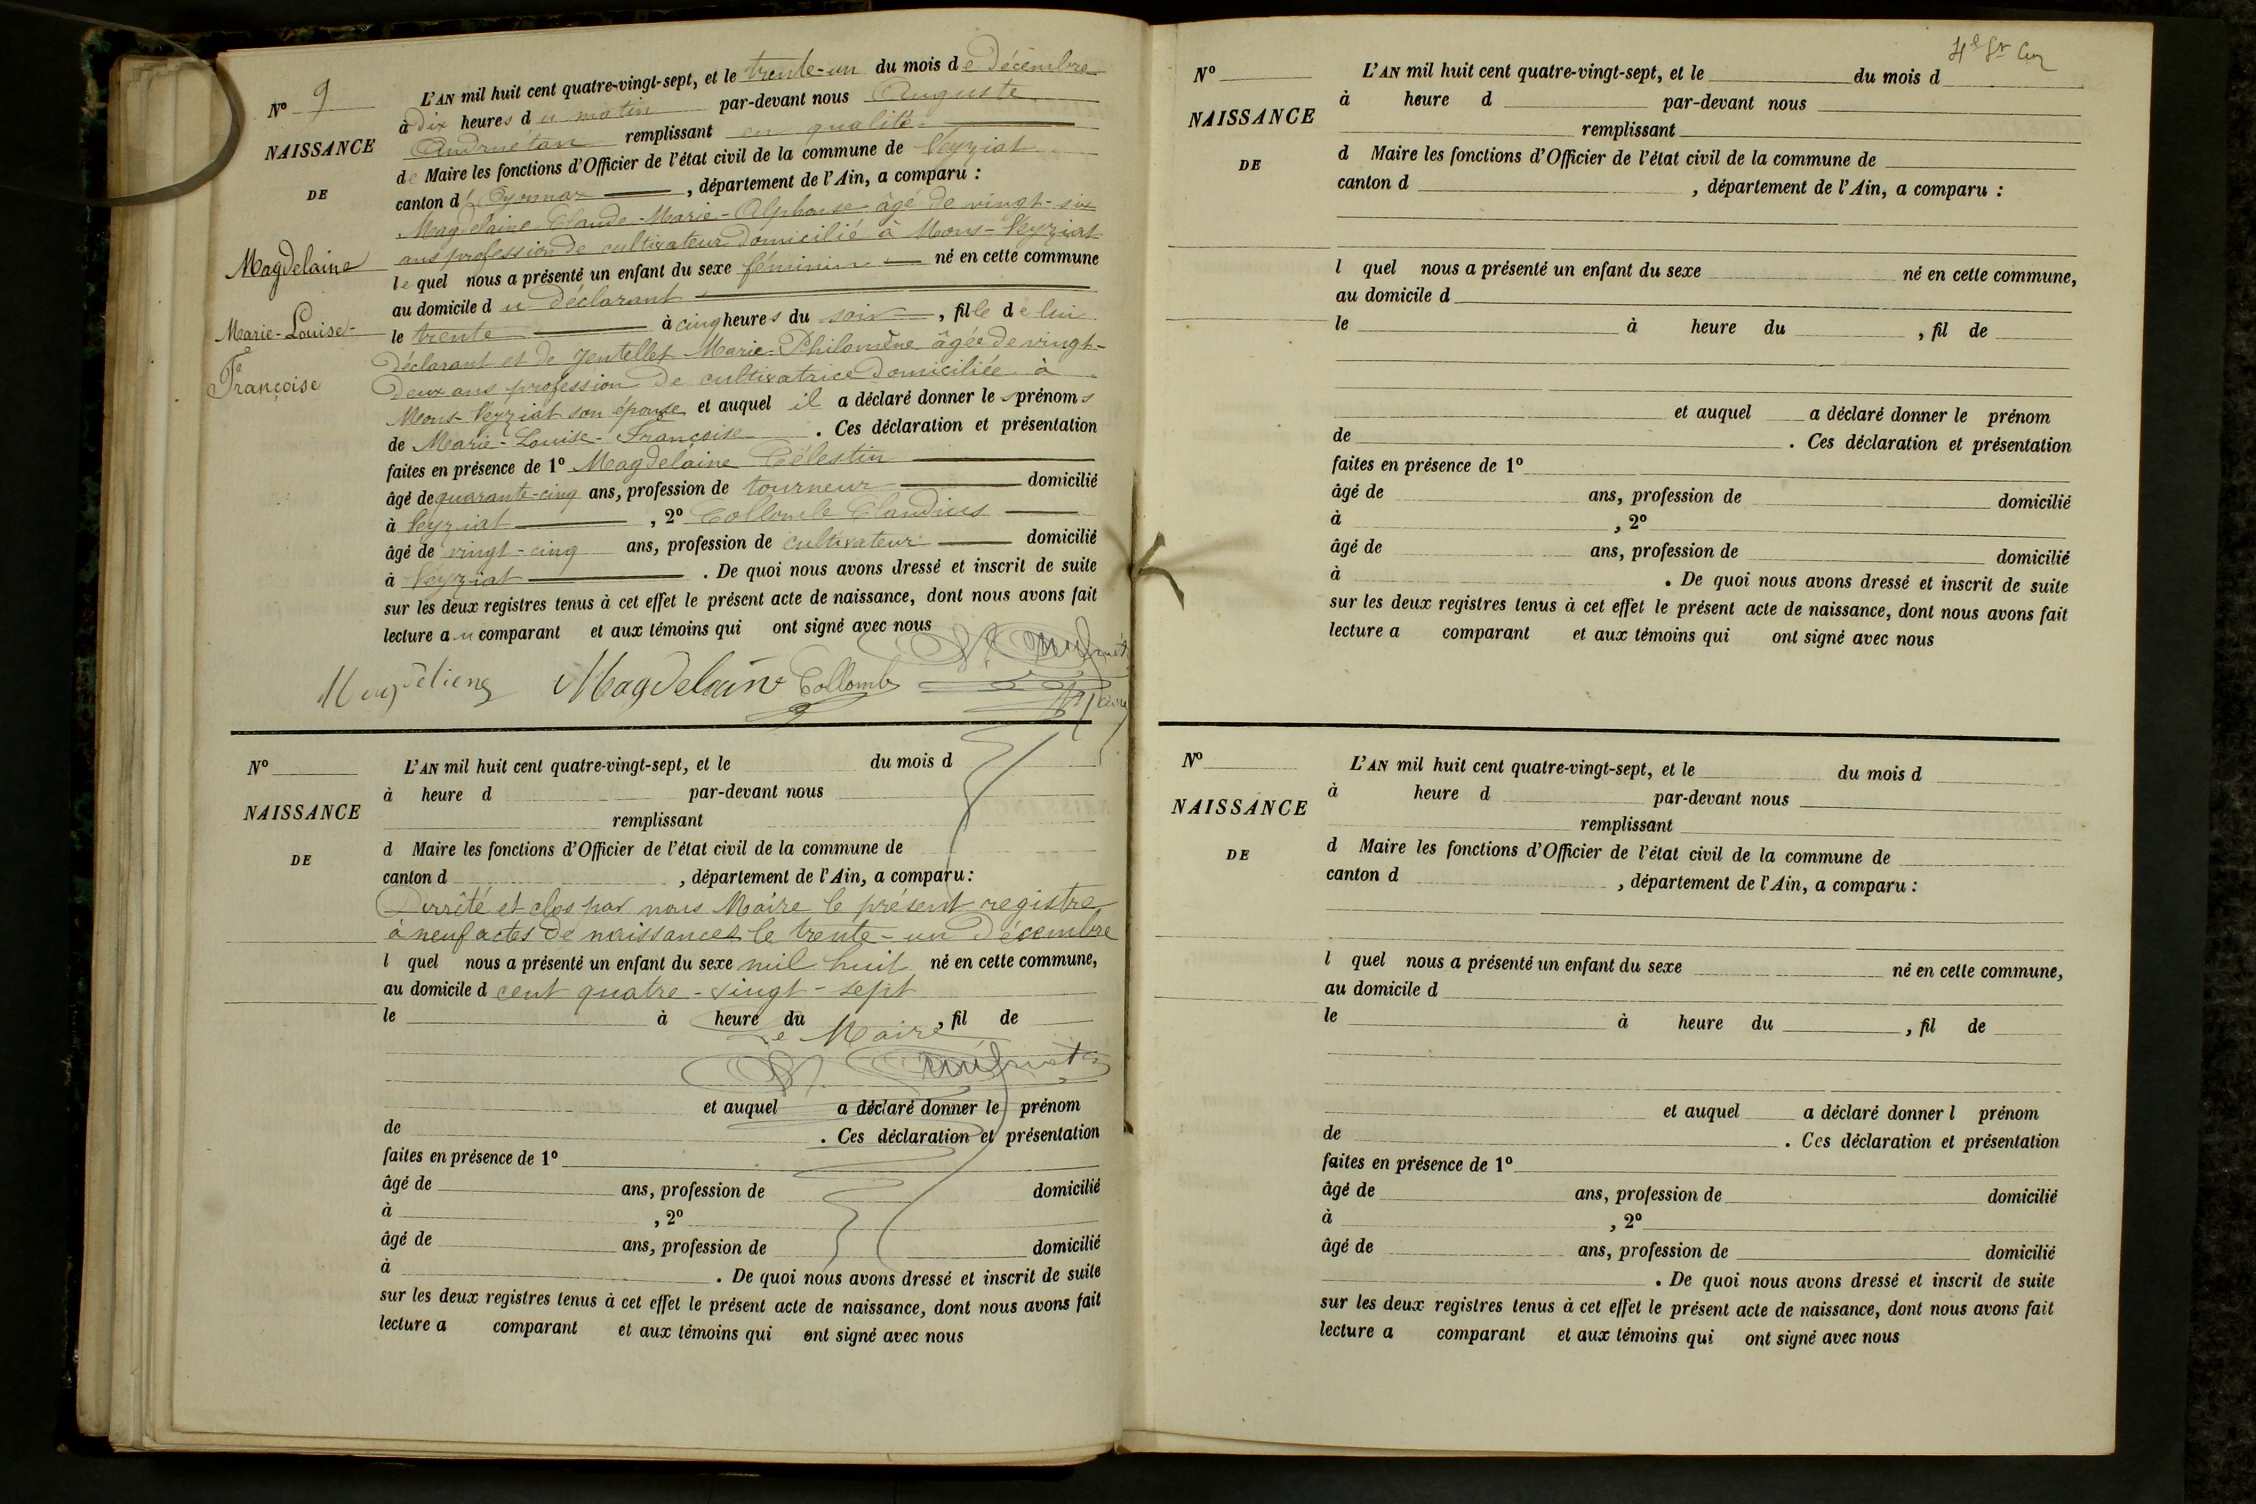 N° 9
NAISSANCE
DE
Magdelaine
Marie-Louise-
Françoise
L'AN mil huit cent quatre-vingt-sept, et le trente-un du mois de Décembre
à dix heures du matin par-devant nous Auguste
Andruétan remplissant en qualité
de Maire les fonctions d'Officier de l'état civil de la commune de Veyziat
canton d'Oyonnax, département de l'Ain, a comparu :
Magdelaine Claude-Marie-Alphonse âgé de vingt-six
ans profession de cultivateur domicilié à Mons-Veyziat
lequel nous a présenté un enfant du sexe féminin né en cette commune
au domicile du déclarant
le trente à cinq heures du soir, fille de lui
déclarant et de Jentellet Marie-Philomène âgée de vingt-
deux ans profession de cultivatrice domiciliée à
Mons-Veyziat son épouse et auquel il a déclaré donner les prénoms
de Marie-Louise-Françoise. Ces déclaration et présentation
faites en présence de 1° Magdelaine Célestin
âgé de quarante-cinq ans, profession de tourneur domicilié
à Veyziat, 2° Collomb Claudius
âgé de vingt-cinq ans, profession de cultivateur domicilié
à Veyziat. De quoi nous avons dressé et inscrit de suite
sur les deux registres tenus à cet effet le présent acte de naissance, dont nous avons fait
lecture au comparant et aux témoins qui ont signé avec nous
Magdelaine Collomb
N°
NAISSANCE
DE
L'AN mil huit cent quatre-vingt-sept, et le du mois d
à heure d par-devant nous
remplissant
d Maire les fonctions d'Officier de l'état civil de la commune de
canton d , département de l'Ain, a comparu :
Arrêté et clos par nous Maire le présent registre
à neuf actes de naissances le trente-un Décembre
l quel nous a présenté un enfant du sexe mil huit né en cette commune,
au domicile d cent quatre-vingt-sept
le à heure du , fil de
Le Maire
et auquel a déclaré donner le prénom
de . Ces déclaration et présentation
faites en présence de 1°
âgé de ans, profession de domicilié
à , 2°
âgé de ans, profession de domicilié
à . De quoi nous avons dressé et inscrit de suite
sur les deux registres tenus à cet effet le présent acte de naissance, dont nous avons fait
lecture a comparant et aux témoins qui ont signé avec nous
N°
NAISSANCE
DE
L'AN mil huit cent quatre-vingt-sept, et le du mois d
à heure d par-devant nous
remplissant
d Maire les fonctions d'Officier de l'état civil de la commune de
canton d , département de l'Ain, a comparu :
l quel nous a présenté un enfant du sexe né en cette commune,
au domicile d
le à heure du , fil de
et auquel a déclaré donner le prénom
de . Ces déclaration et présentation
faites en présence de 1°
âgé de ans, profession de domicilié
à , 2°
âgé de ans, profession de domicilié
à . De quoi nous avons dressé et inscrit de suite
sur les deux registres tenus à cet effet le présent acte de naissance, dont nous avons fait
lecture a comparant et aux témoins qui ont signé avec nous
N°
NAISSANCE
DE
L'AN mil huit cent quatre-vingt-sept, et le du mois d
à heure d par-devant nous
remplissant
d Maire les fonctions d'Officier de l'état civil de la commune de
canton d , département de l'Ain, a comparu :
l quel nous a présenté un enfant du sexe né en cette commune,
au domicile d
le à heure du , fil de
et auquel a déclaré donner l prénom
de . Ces déclaration et présentation
faites en présence de 1°
âgé de ans, profession de domicilié
à , 2°
âgé de ans, profession de domicilié
. De quoi nous avons dressé et inscrit de suite
sur les deux registres tenus à cet effet le présent acte de naissance, dont nous avons fait
lecture a comparant et aux témoins qui ont signé avec nous